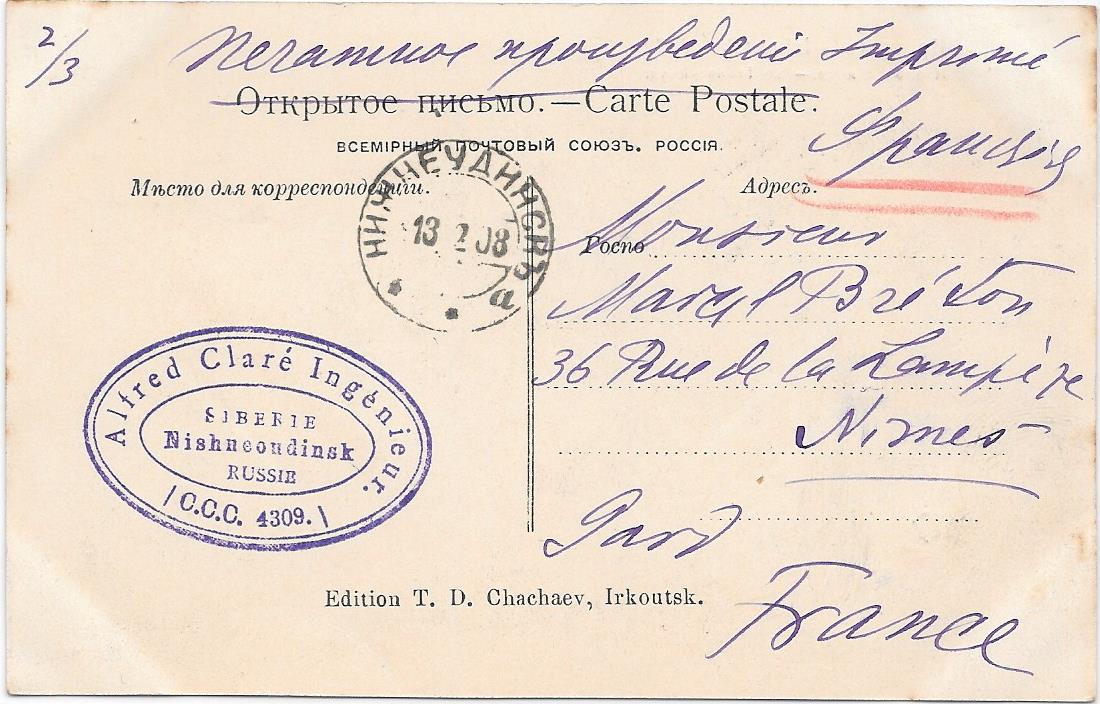 2/3
Печатное произведенiе Imprimé
Открытое письмо. — Carte Postale.
ВСЕМIРНЫЙ ПОЧТОВЫЙ СОЮЗЪ. РОССIЯ.
Францiя
Мѣсто для корреспонденцiи.
Адресъ.
НИЖНЕУДИНСКЪ
13 2 08
а
Госпо
Monsieur
Marcel Bréton
36 Rue de la Lampèze
Nimes
Gard
France
Alfred Claré Ingénieur.
SIBERIE
Nishneoudinsk
RUSSIE
C.C.C. 4309.
Edition T. D. Chachaev, Irkoutsk.